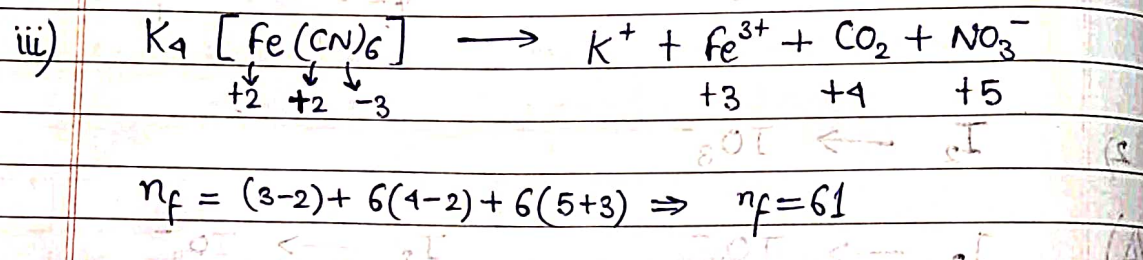 iii) K₄ [Fe(CN)₆] ⟶ K⁺ + Fe³⁺ + CO₂ + NO₃⁻
+2 +2 -3 +3 +4 +5
n_f = (3-2) + 6(4-2) + 6(5+3) ⇒ n_f = 61